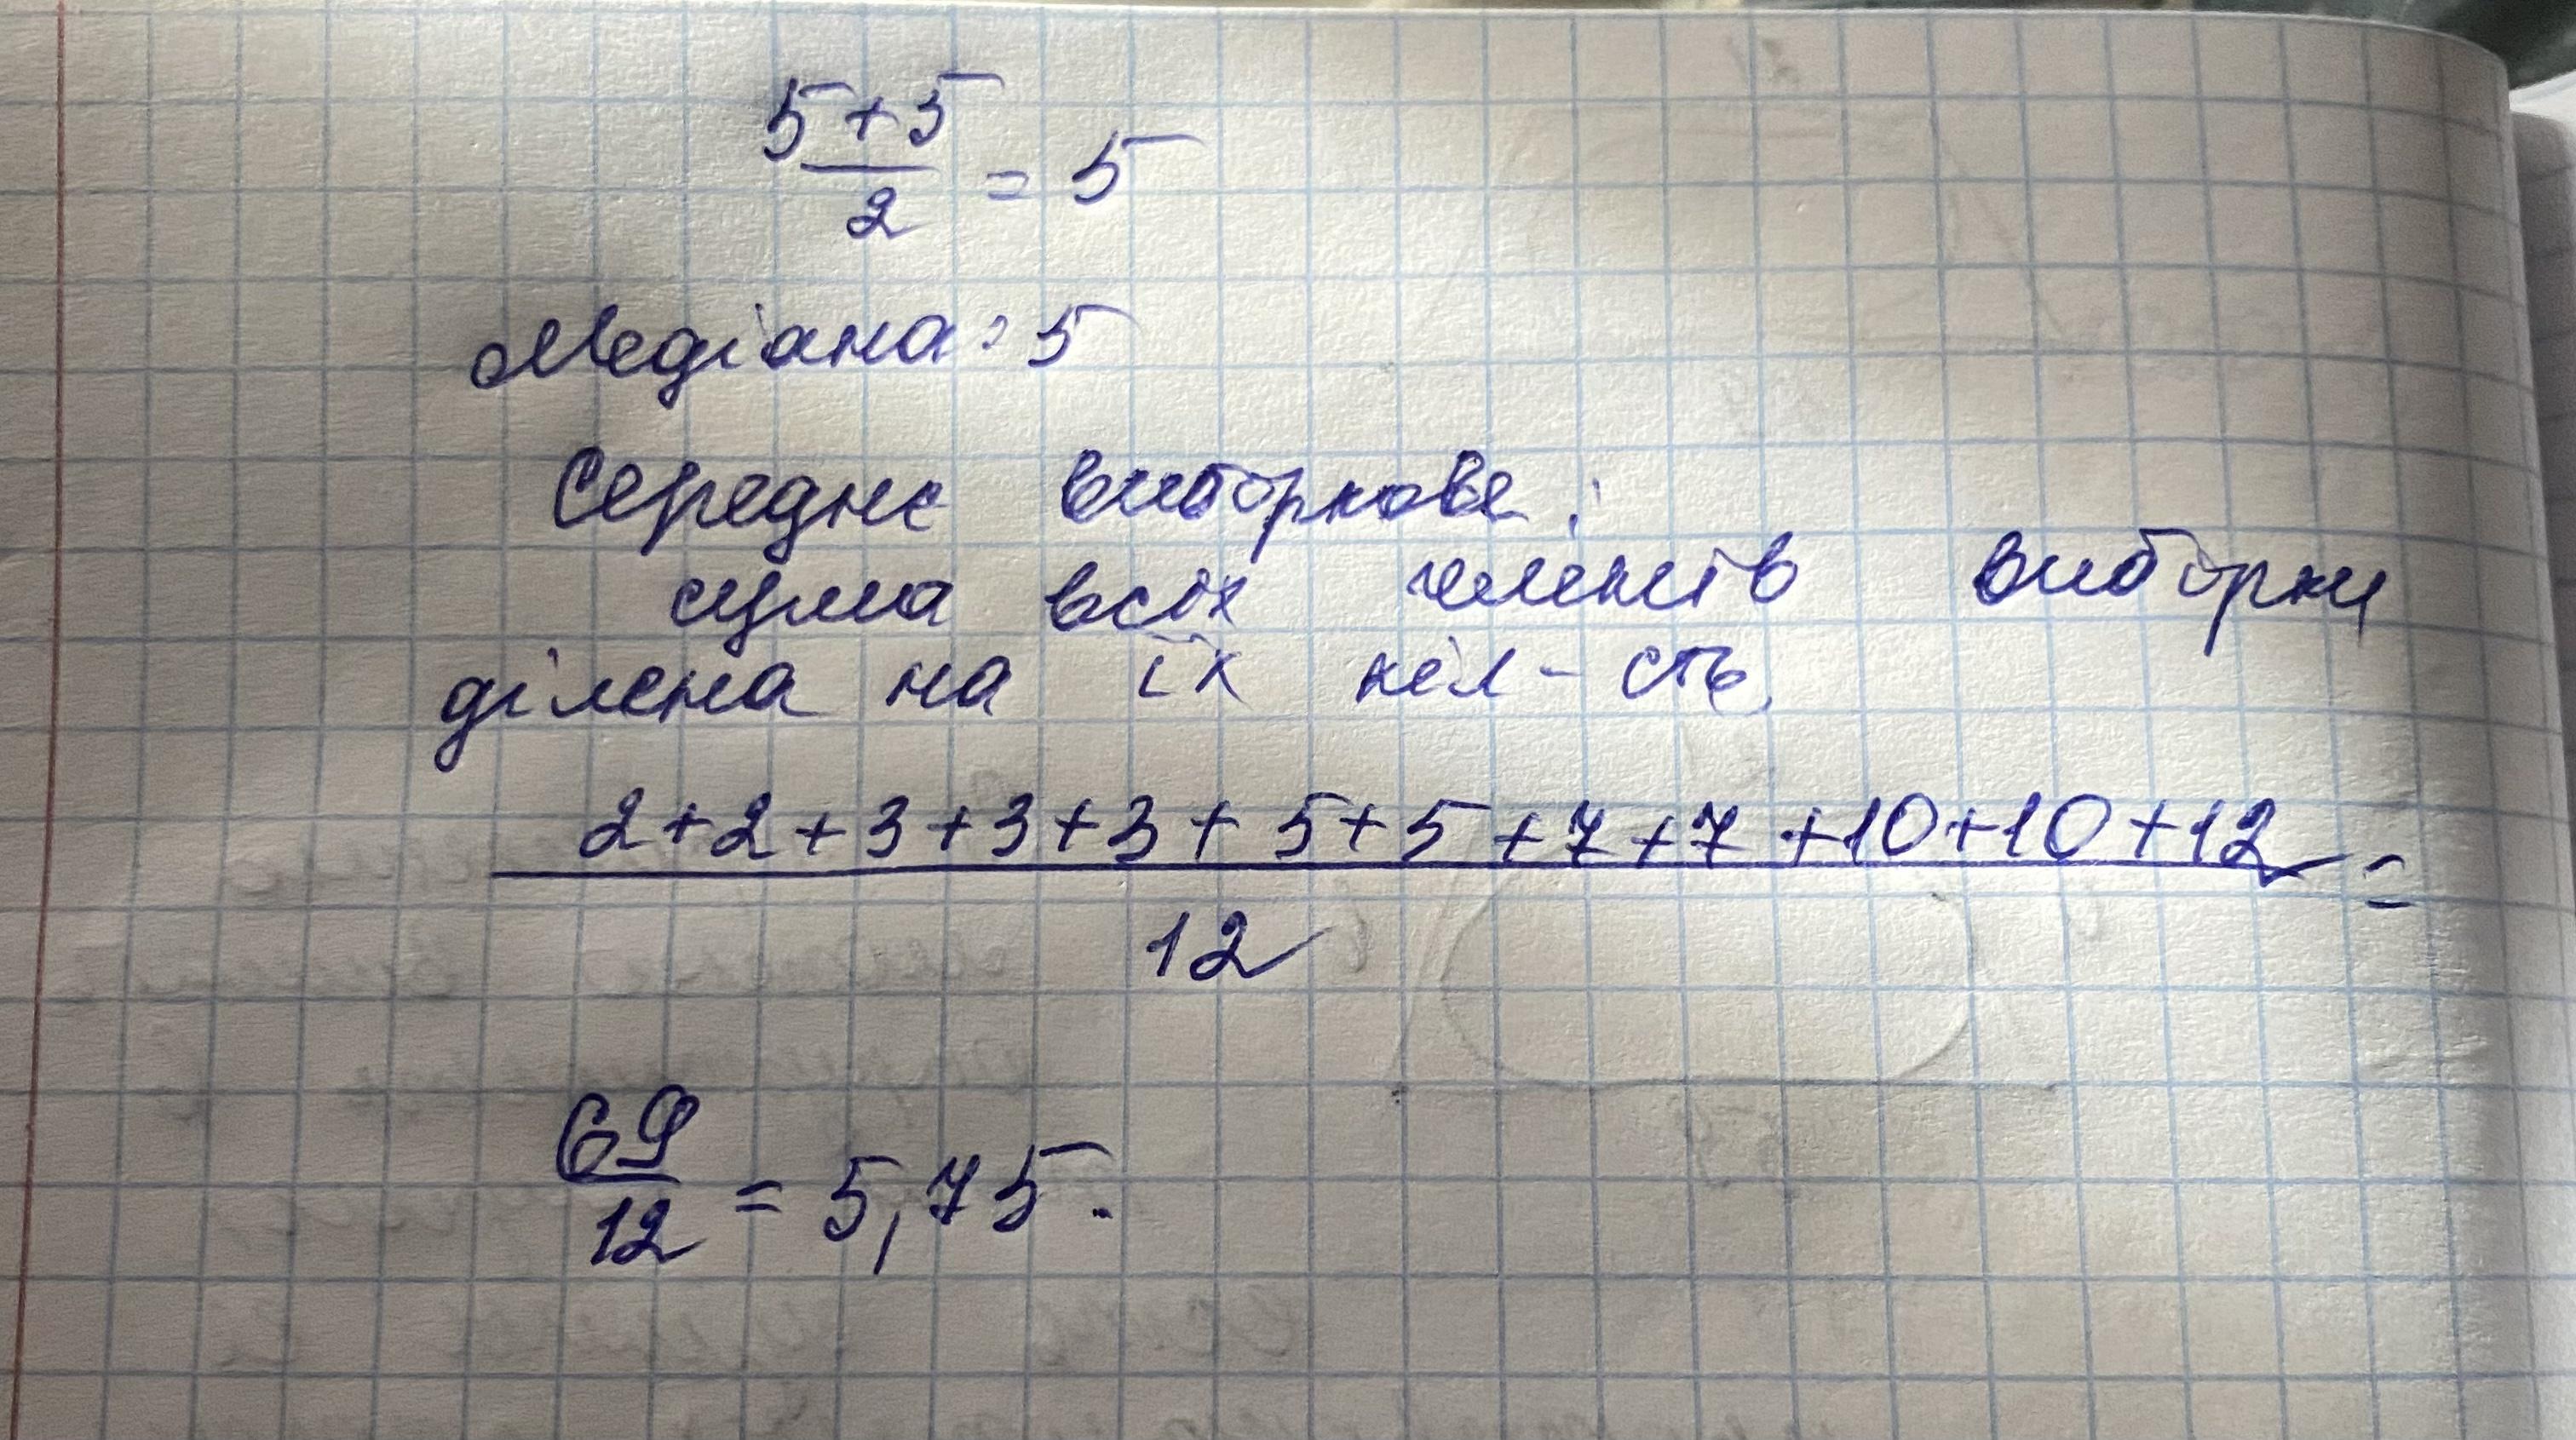 5+5
2
= 5
Медіана: 5
Середнє вибіркове:
сума всіх членів вибірки
ділена на їх кіл-сть
2+2+3+3+3+5+5+7+7+10+10+12 =
12
69
12
= 5,75.